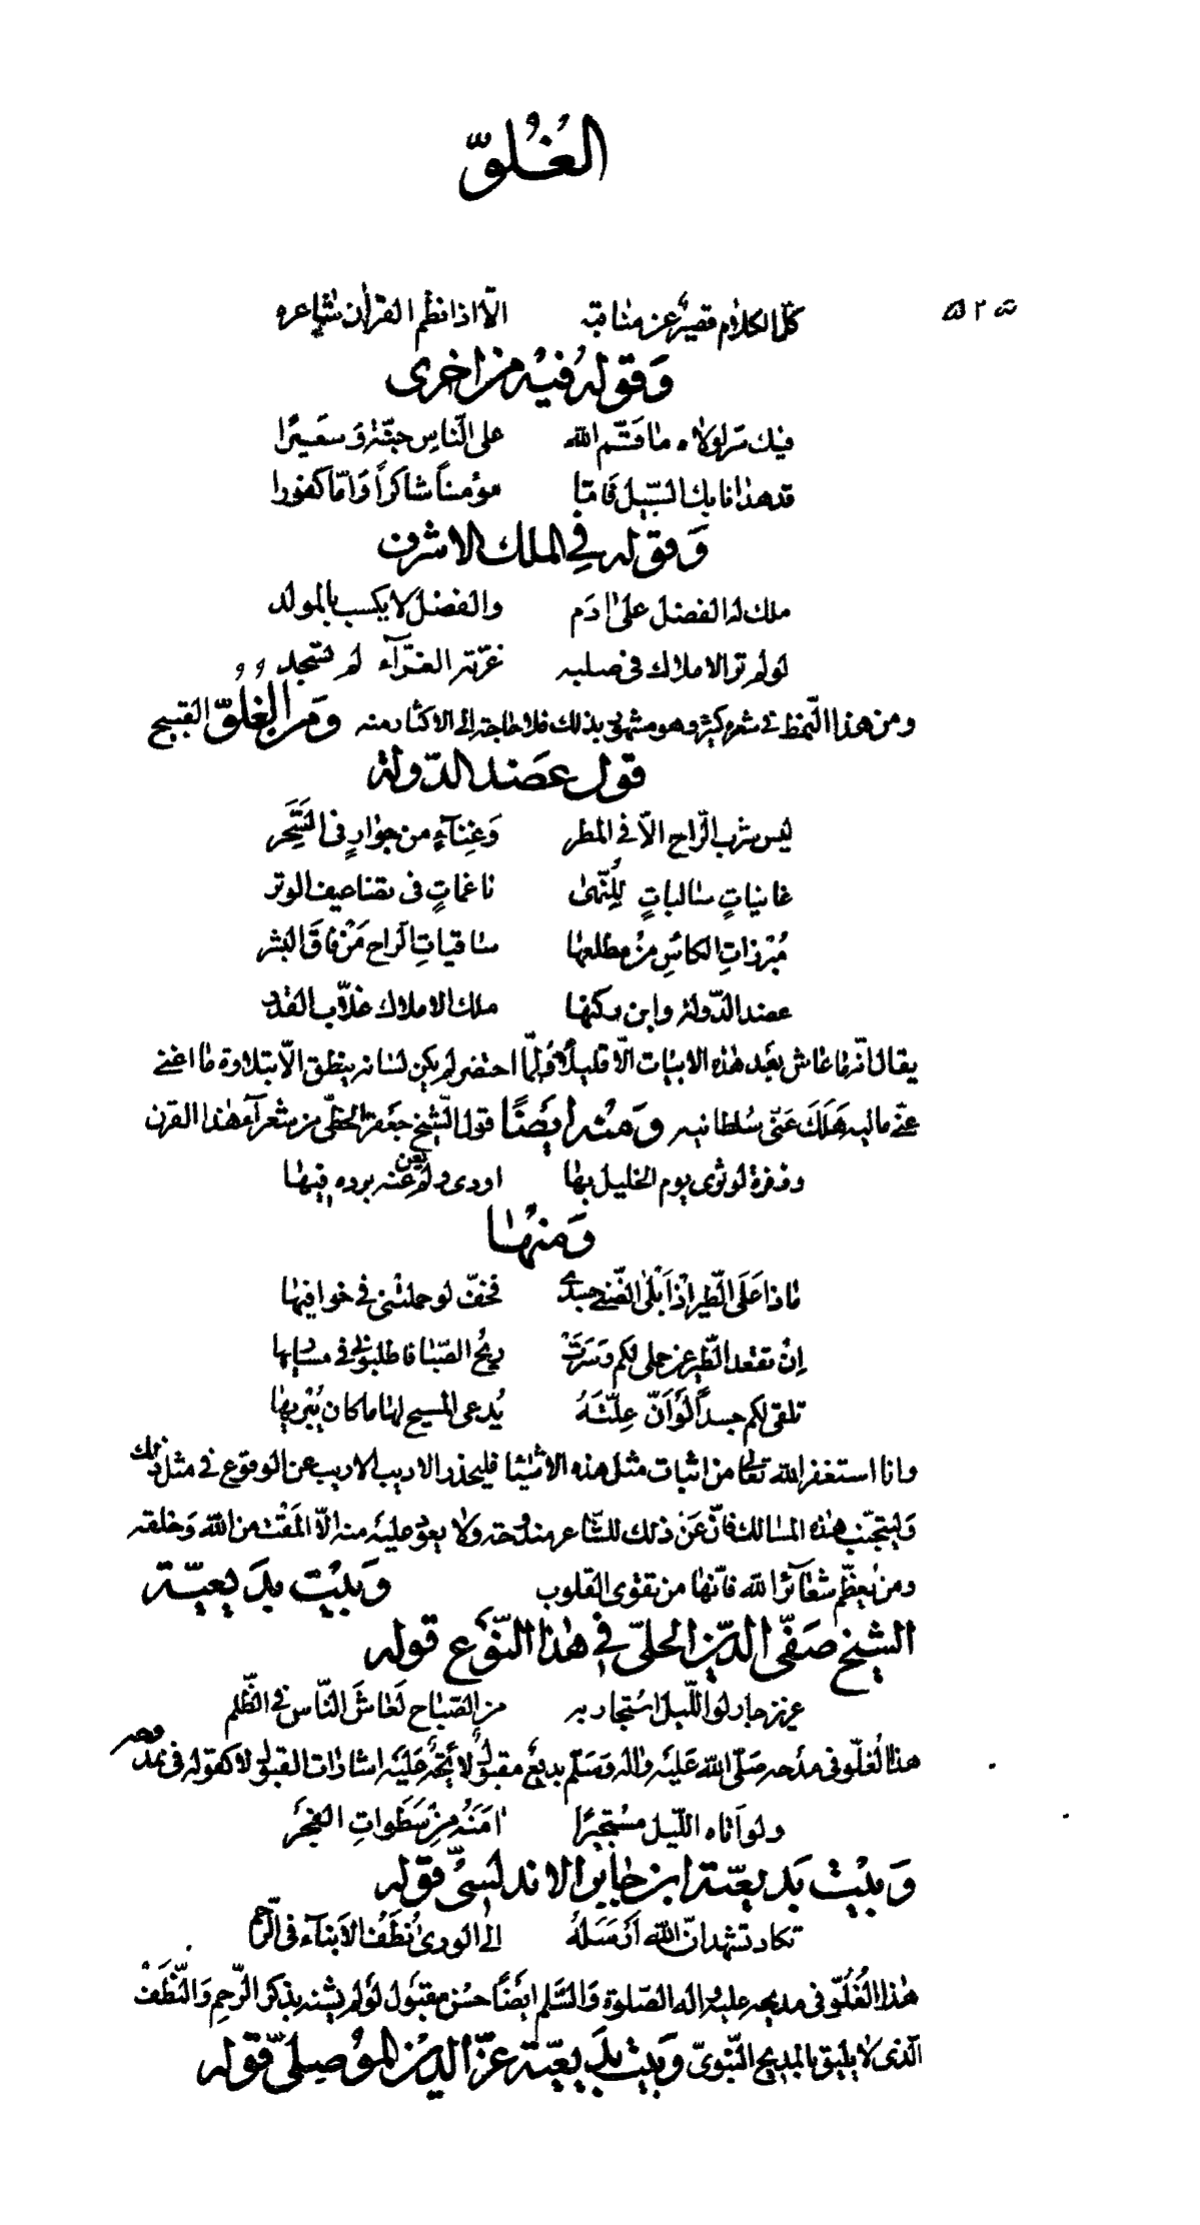 الغُلُوّ
٥٢٥
كلّ الكلام قصيرٌ عن مناقبه الّا اذا نظم القران شاعره
وَقوله فيه من اخرى
فيك سرّ لولاه ما قسّم الله على النّاس جنّة وَسعَيرًا
قد هدانا بك السّبيل فامّا مؤمناً شاكراً وَامّا كفورا
وَقوله في الملك الاشرف
ملك له الفضل على ادَم والفضل لا يكسب بالمولد
لو لم تر الاملاك في صلبه غرّته الغرّآء لم تسجد
ومن هذا النّمط في شعره كثير وهو مشهور بذلك فلا حاجة الى الاكثار منه وَمن الغُلُوّ القبيح
قول عضد الدّولة
ليس شرب الرّاح الّا في المطر وَغِنآءٍ من جوارٍ في السَّحَر
غانياتٍ سالباتٍ لِلنّهىٰ ناغماتٍ في تضاعيف الوتر
مُبْرزاتِ الكاسِ من مطلعها ساقياتِ الراح مَنْ فاقَ البشر
عضد الدّولة وابن ركنها ملك الاملاك غلّاب القدر
يقال انّه ما عاش بعَد هذه الابيات الّا قليلاً وَلمّا احتضر لم يكن لسانه ينطق الّا بتلاوة ما اغنى
عنّي ماليه هَلَكَ عَنّي سُلطانيه وَمنه ايضًا قول الشّيخ جعَفر الخطّي من شعرآء هذا القرن
وزفرة لو ثوى يوم الخليل بها اودى ولم يغن عنه برده فيها
وَمنها
ماذا عَلَى الطّير اذ اَبلى الضّنى جسدي فخفّ لو حملتني في خوافيها
اِن تقعد الطّير عن حملي لكم وَسَرَتْ ريح الصّبا فاطلبوني في مساريها
تلقي لكم جسداً لَوْ اَنّ عِلّتَهُ يُدعى المسيح لها ما كان يُبْريها
وانا استغفر الله تعالى من اثبات مثل هذه الاشياء فليحذر الاديب الاريب عن الوقوع في مثل ذلك
وَليتجنّب هذه المسالك فانّ عَنْ ذلك للشّاعر مندُوحة ولا يعود عليَه منه الّا المَقْت من الله وَخلقه
ومن يُعظّم شعَآئر الله فانّها من تقوى القلوب وَبيْت بدَيعيّة
الشيخ صَفّي الدّين الحلّي في هٰذا النّوَع قوله
عزيز جار لو اللّيل استجار به من الصَباح لَعاشَ النّاس في الظّلم
هذا الُغلّو في مدَحه صَلّى الله عَليَه واله وَسَلّم بديعٌ مقبول لائحة عَليَه اشارات القبول لا كقوله في ممدُوحه
ولو اَتاه اللّيل مسُتجيرًا اٰمَنَهُ مِن سَطَواتِ الفجْرِ
وَبيْت بدَيعيّة ابن جابر الاندلسيّ قوله
تكاد تشهد انّ الله اَرْسَلهُ الى الورى نُطَف الاَبناء في الرّحم
هٰذا الغُلُوّ في مديحه عليه واله الصّلوة وَالسّلم ايضًا حسَن مقبَول لوَ لم يشنه بذكر الرّحم وَالنّطَف
الّذى لا يليق بالمديح النّبويّ وَبيت بدَيعيّة عزّ الدّين المُوصليّ قوله